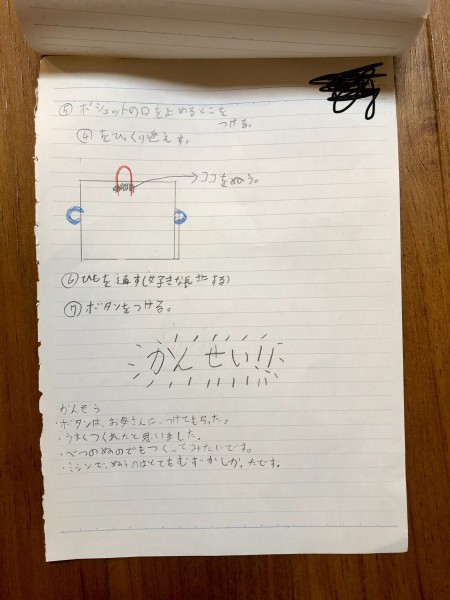 ⑤ ポシェットの口をとめるとこを
つける。
④をひっくり返えす。
ココをぬう。
⑥ ひもを通す(好きな長さにする)
⑦ ボタンをつける。
かんせい!!
かんそう
・ボタンは、お母さんに、つけてもらった。
・うまくつくれたと思いました。
・べつのぬのでもつくってみたいです。
・ミシンで、ぬうのはとてもむずかしかったです。